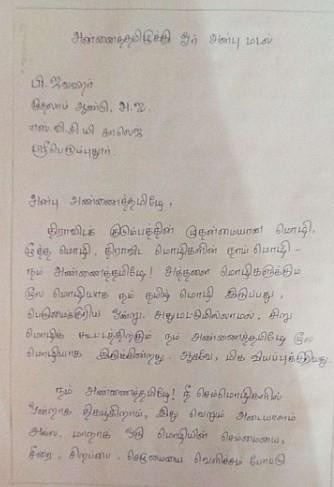 அன்னைத்தமிழுக்கு ஓர் அன்பு மடல்
பி. ஐஸ்வர்
முதலாம் ஆண்டு,
எஸ்.வி.சி.யி காலேஜ்
ஸ்ரீபெரும்புதூர்.
அன்பு அன்னைத்தமிழே,
திராவிடக் குடும்பத்தின் முதன்மையான மொழி,
மூத்த மொழி, திராவிட மொழிகளின் தாய் மொழி -
நம் அன்னைத்தமிழே! அத்தனை மொழிகளுக்கும்
மூல மொழியாக நம் தமிழ் மொழி இருப்பது,
பெருமைக்குரிய ஒன்று. அதுமட்டுமில்லாமல், சிறு
மொழிக் கூட்டத்திற்கும் நம் அன்னைத்தமிழே மூல
மொழியாக இருக்கின்றது. ஆகவே, மிக வியப்புக்குரியது.
நம் அன்னைத்தமிழே! நீ செம்மொழிகளில்
ஒன்றாக திகழ்கிறாய், இது வெறும் அடையாளம்
அல்ல, மாறாக ஒரு மொழியின் செம்மையை,
சீரை, சிறப்பை, செழுமையை வெளிச்சம் போட்டு